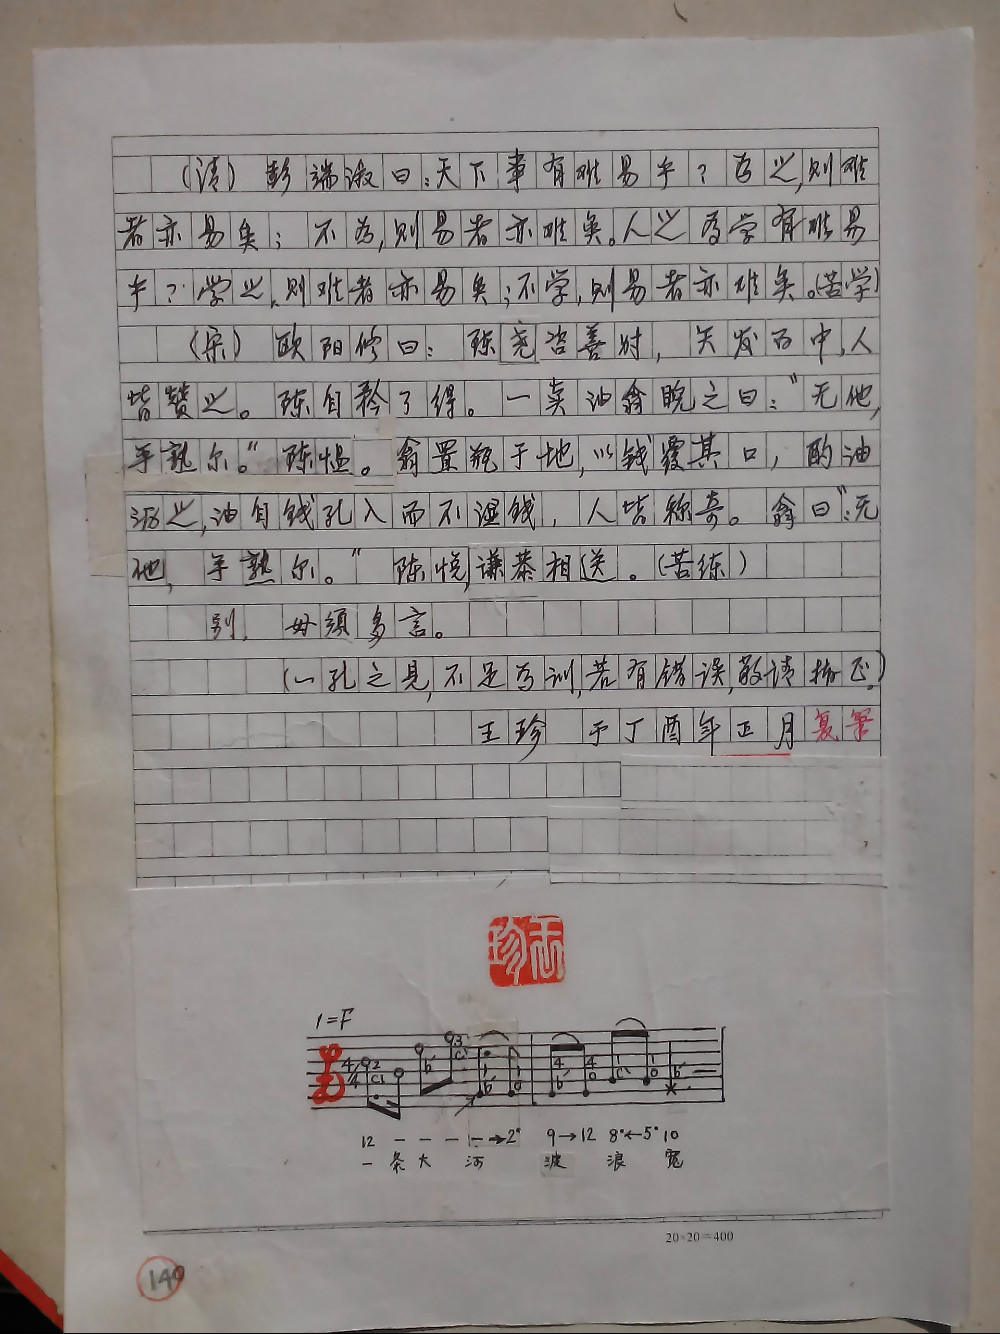 (请) 彭端淑曰:天下事有难易乎?为之,则难
者亦易矣;不为,则易者亦难矣。人之为学有难易
乎?学之,则难者亦易矣;不学,则易者亦难矣。(苦学)
(宋) 欧阳修曰:陈尧咨善射,矢发百中,人
皆赞之。陈自矜了得。一卖油翁睨之曰:"无他,
手熟尔。"陈愠。翁置瓶于地,以钱覆其口,酌油
沥之,油自钱孔入而不湿钱,人皆称奇。翁曰:"无
他,手熟尔。"陈悦,谦恭相送。(苦练)
别,毋须多言。
(一孔之见,不足为训,若有错误,敬请扬正。)
王珍 于丁酉年正月复笔
珍 王
1=F
4/4
12 - - - - →2° 9→12 8°←5° 10
一 条 大 河 波 浪 宽
20×20=400
140